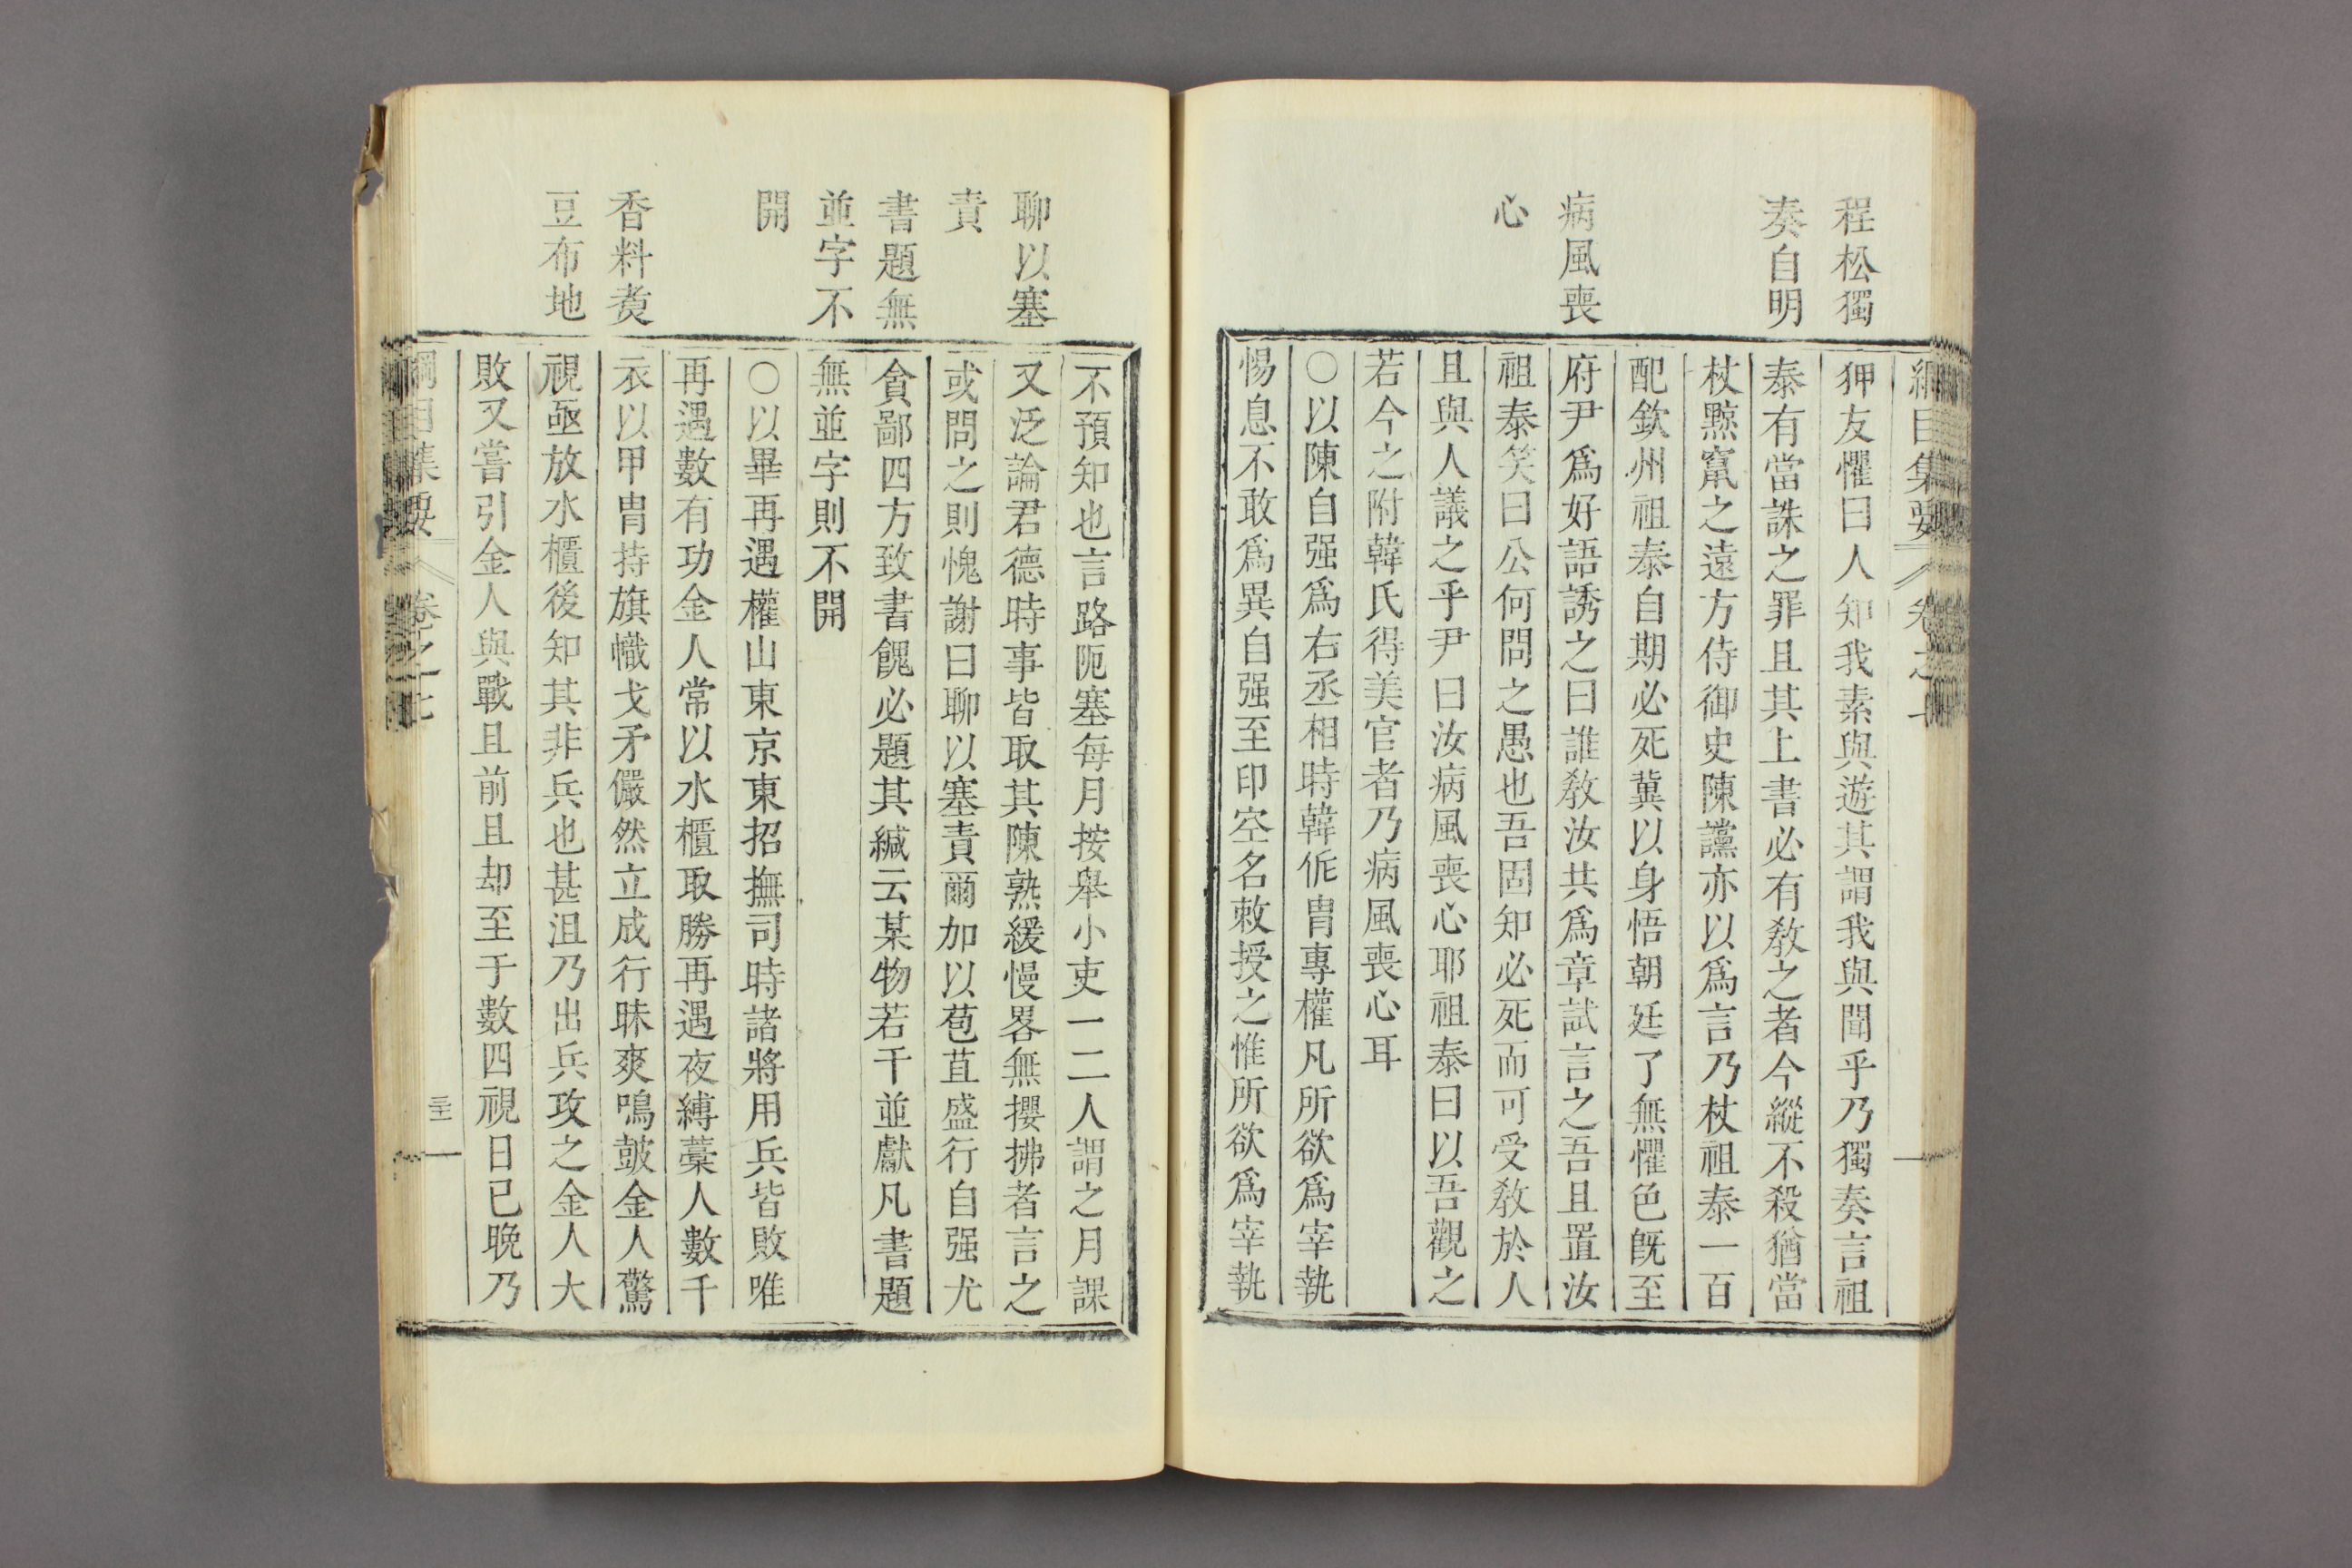 程松獨
奏自明
病風喪
心
綱目集要 卷之十
狎友懼曰人知我素與遊其謂我與聞乎乃獨奏言祖
泰有當誅之罪且其上書必有教之者今縱不殺猶當
杖黥竄之遠方侍御史陳讜亦以爲言乃杖祖泰一百
配欽州祖泰自期必死冀以身悟朝廷了無懼色旣至
府尹爲好語誘之曰誰教汝共爲章試言之吾且置汝
祖泰笑曰公何問之愚也吾固知必死而可受教於人
且與人議之乎尹曰汝病風喪心耶祖泰曰以吾觀之
若今之附韓氏得美官者乃病風喪心耳
○以陳自强爲右丞相時韓侂胄專權凡所欲爲宰執
惕息不敢爲異自强至印空名敕授之惟所欲爲宰執
聊以塞
責
書題無
並字不
開
香料煑
豆布地
不預知也言路阨塞每月按舉小吏一二人謂之月課
又泛論君德時事皆取其陳熟緩慢畧無攖拂者言之
或問之則愧謝曰聊以塞責爾加以苞苴盛行自强尤
貪鄙四方致書餽必題其緘云某物若干並獻凡書題
無並字則不開
○以畢再遇權山東京東招撫司時諸將用兵皆敗唯
再遇數有功金人常以水櫃取勝再遇夜縛藁人數千
衣以甲冑持旗幟戈矛儼然立成行昧爽鳴皷金人驚
視亟放水櫃後知其非兵也甚沮乃出兵攻之金人大
敗又嘗引金人與戰且前且却至于數四視日已晚乃
綱目集要 卷之十七